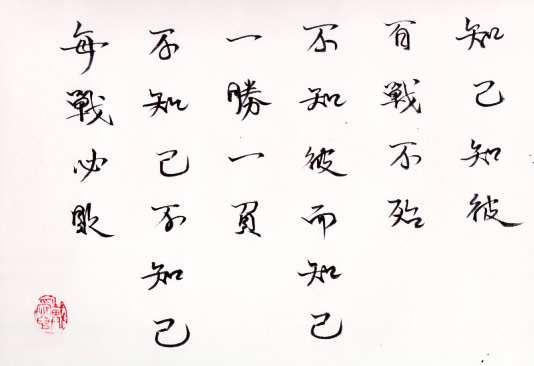 知己知彼
百戰不殆
不知彼而知己
一勝一負
不知己不知己
每戰必敗